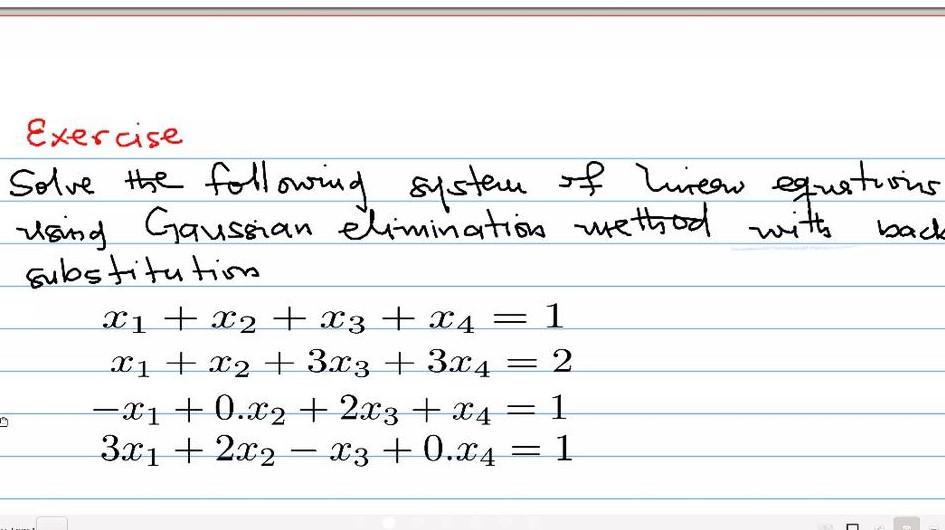 Exercise
Solve the following system of linear equations
using Gaussian elimination method with back
substitution
x₁ + x₂ + x₃ + x₄ = 1
x₁ + x₂ + 3x₃ + 3x₄ = 2
−x₁ + 0.x₂ + 2x₃ + x₄ = 1
3x₁ + 2x₂ − x₃ + 0.x₄ = 1